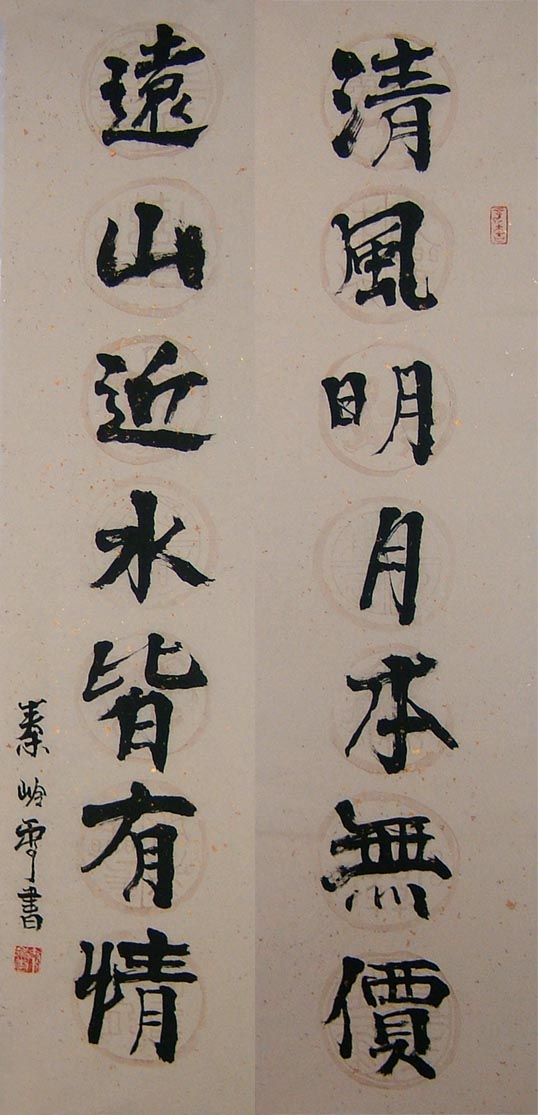 清風明月本無價
遠山近水皆有情
秦岭雪書